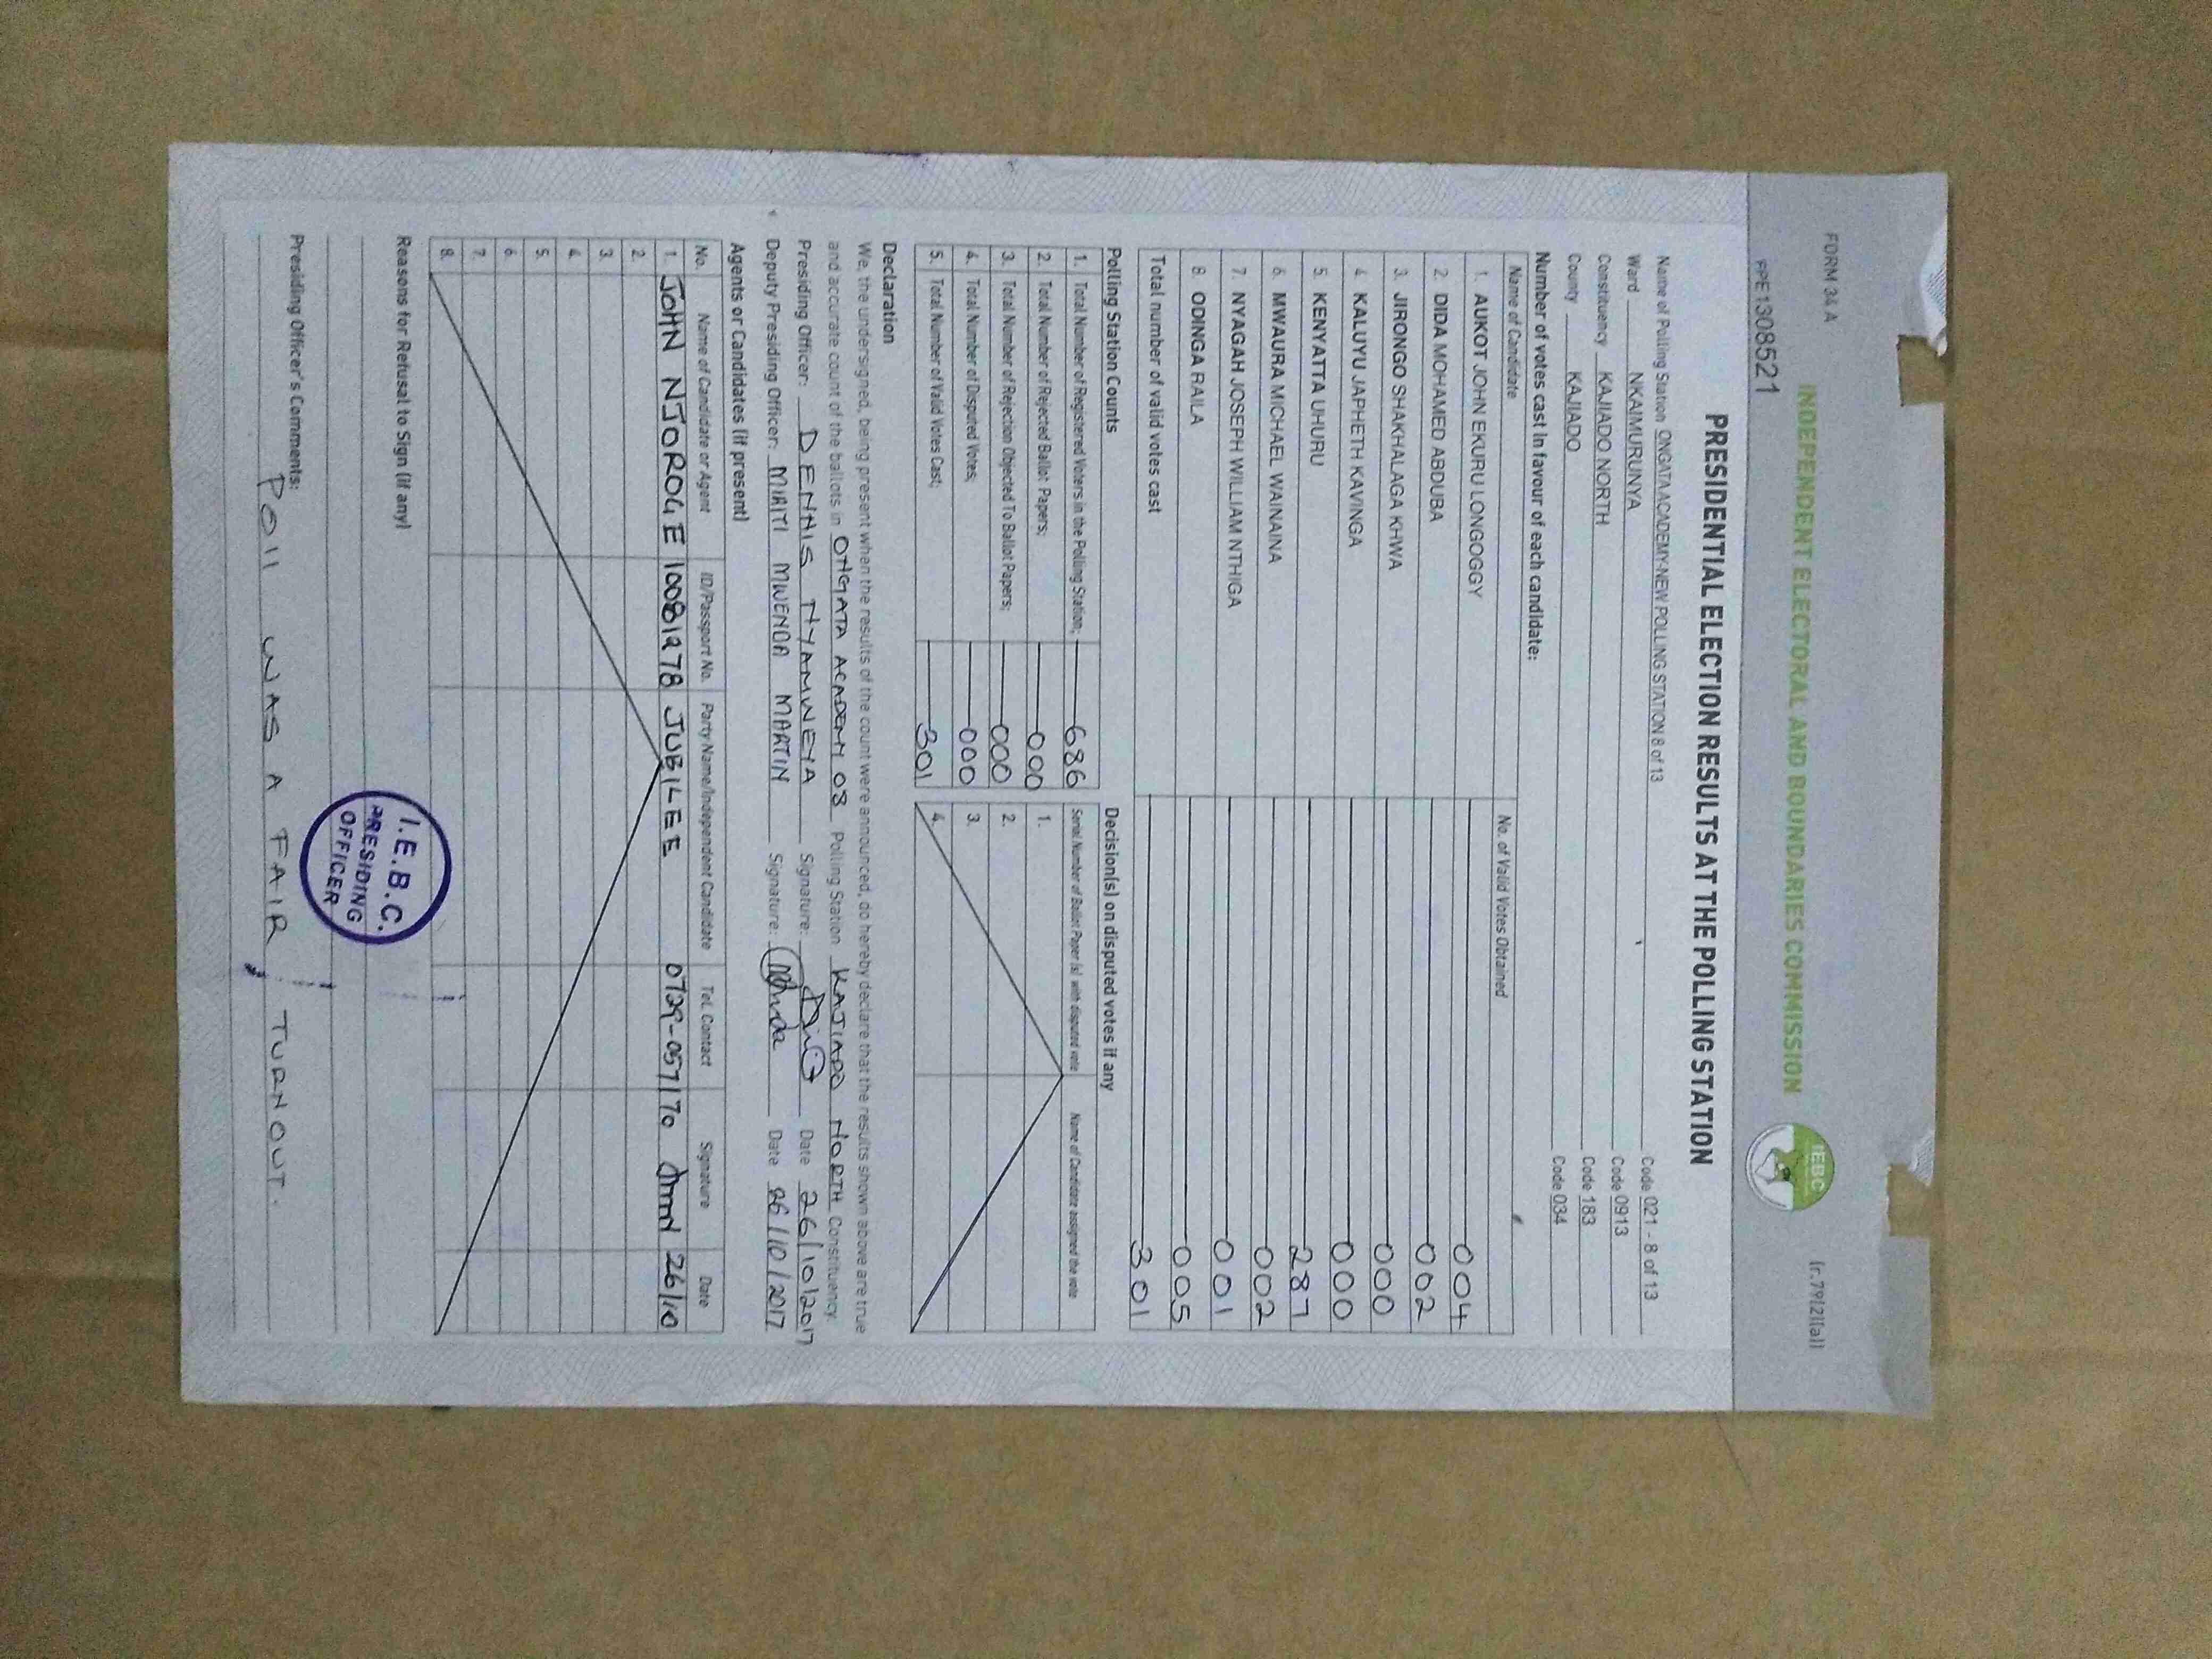 FORM 34 A
(r.79(2)(a))
INDEPENDENT ELECTORAL AND BOUNDARIES COMMISSION
IEBC
PPE1308521
PRESIDENTIAL ELECTION RESULTS AT THE POLLING STATION
Name of Polling Station ONGATA ACADEMY-NEW POLLING STATION 8 of 13 Code 021 - 8 of 13
Ward NKAIMURUNYA Code 0913
Constituency KAJIADO NORTH Code 183
County KAJIADO Code 034
Number of votes cast in favour of each candidate:
Name of Candidate No. of Valid Votes Obtained
1. AUKOT JOHN EKURU LONGOGGY 004
2. DIDA MOHAMED ABDUBA 002
3. JIRONGO SHAKHALAGA KHWA 000
4. KALUYU JAPHETH KAVINGA 000
5. KENYATTA UHURU 287
6. MWAURA MICHAEL WAINAINA 002
7. NYAGAH JOSEPH WILLIAM NTHIGA 001
8. ODINGA RAILA 005
Total number of valid votes cast 301
Polling Station Counts
1. Total Number of Registered Voters in the Polling Station; 686
2. Total Number of Rejected Ballot Papers; 000
3. Total Number of Rejection Objected To Ballot Papers; 000
4. Total Number of Disputed Votes; 000
5. Total Number of Valid Votes Cast; 301
Decision(s) on disputed votes if any
Serial Number of Ballot Paper (s) with disputed vote Name of Candidate assigned the vote
1.
2.
3.
4.
Declaration
We, the undersigned, being present when the results of the count were announced, do hereby declare that the results shown above are true
and accurate count of the ballots in ONGATA ACADEMY 08 Polling Station KAJIADO NORTH Constituency.
Presiding Officer: DENNIS NYAMWEYA Signature: Date 26/10/2017
Deputy Presiding Officer: MIRITI MWENDA MARTIN Signature: Date 26/10/2017
Agents or Candidates (if present)
No. Name of Candidate or Agent ID/Passport No. Party Name/Independent Candidate Tel. Contact Signature Date
1. JOHN NJOROGE 10081978 JUBILEE 0729-057170 26/10
2.
3.
4.
5.
6.
7.
8.
Reasons for Refusal to Sign (if any)
I.E.B.C.
PRESIDING
OFFICER
Presiding Officer's Comments:
Poll WAS A FAIR TURNOUT.